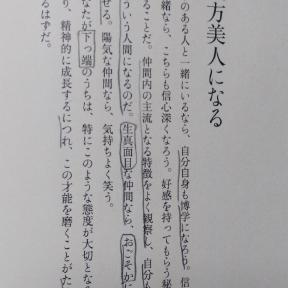 方美人になる
のある人と一緒にいるなら、自分自身も博学になろう。信
緒なら、こちらも信心深くなろう。好感を持ってもらう秘
ることだ。仲間内の主流となる特徴をよく観察し、自分も
ういう人間になるのだ。生真面目な仲間なら、おごそかに
せる。陽気な仲間なら、気持ちよく笑う。
なたが下っ端のうちは、特にこのような態度が大切とな
り、精神的に成長するにつれ、この才能を磨くことがた
るはずだ。